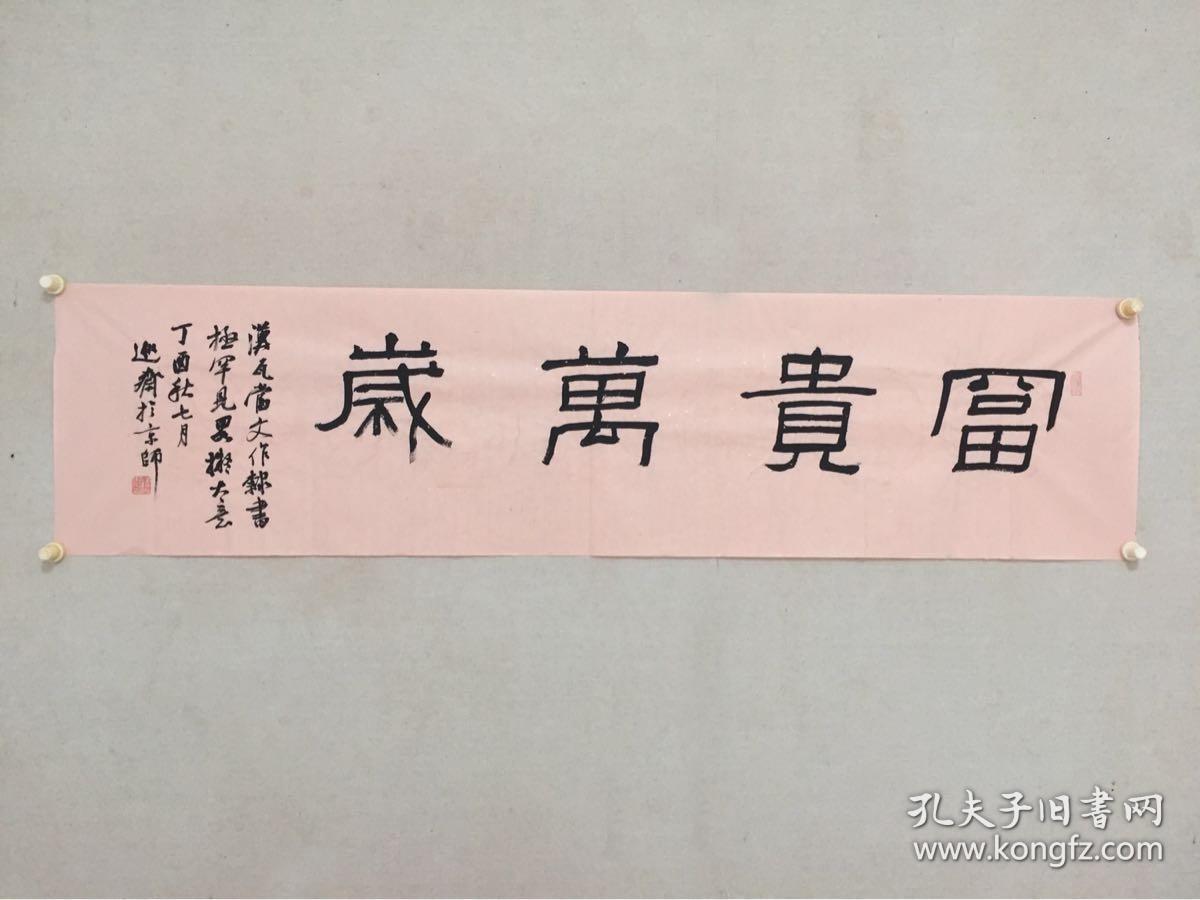 富貴萬歲
漢瓦當文作隸書
極罕見畧擬大意
丁酉秋七月
齋於京師
孔夫子旧书网
www.kongfz.com